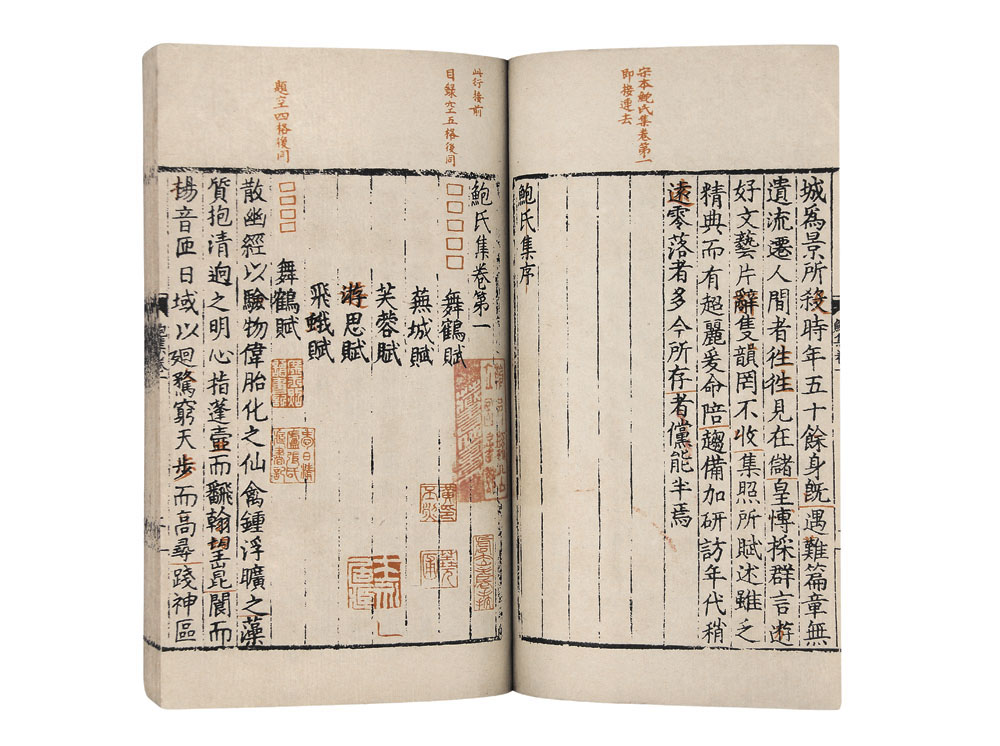 宋本鮑氏集卷第一
即接連去
城為景所殺時年五十餘身旣遇難篇章無
遺流遷人間者徃徃見在儲皇博採群言遊
好文藝片辭隻韻罔不收集照所賦述雖乏
精典而有超麗爰命陪趨備加研訪年代稍
遠零落者多今所存者儻能半焉
鮑氏集序
此行接前
目錄空五格後同
□□□□□
鮑氏集卷第一
舞鶴賦
蕪城賦
芙蓉賦
游思賦
飛蛾賦
題空四格後同
□□□□
舞鶴賦
散幽經以驗物偉胎化之仙禽鍾浮曠之藻
質抱清迥之明心指蓬壺而飜翰望崑閬而
揚音匝日域以廻騖窮天步而高尋踐神區